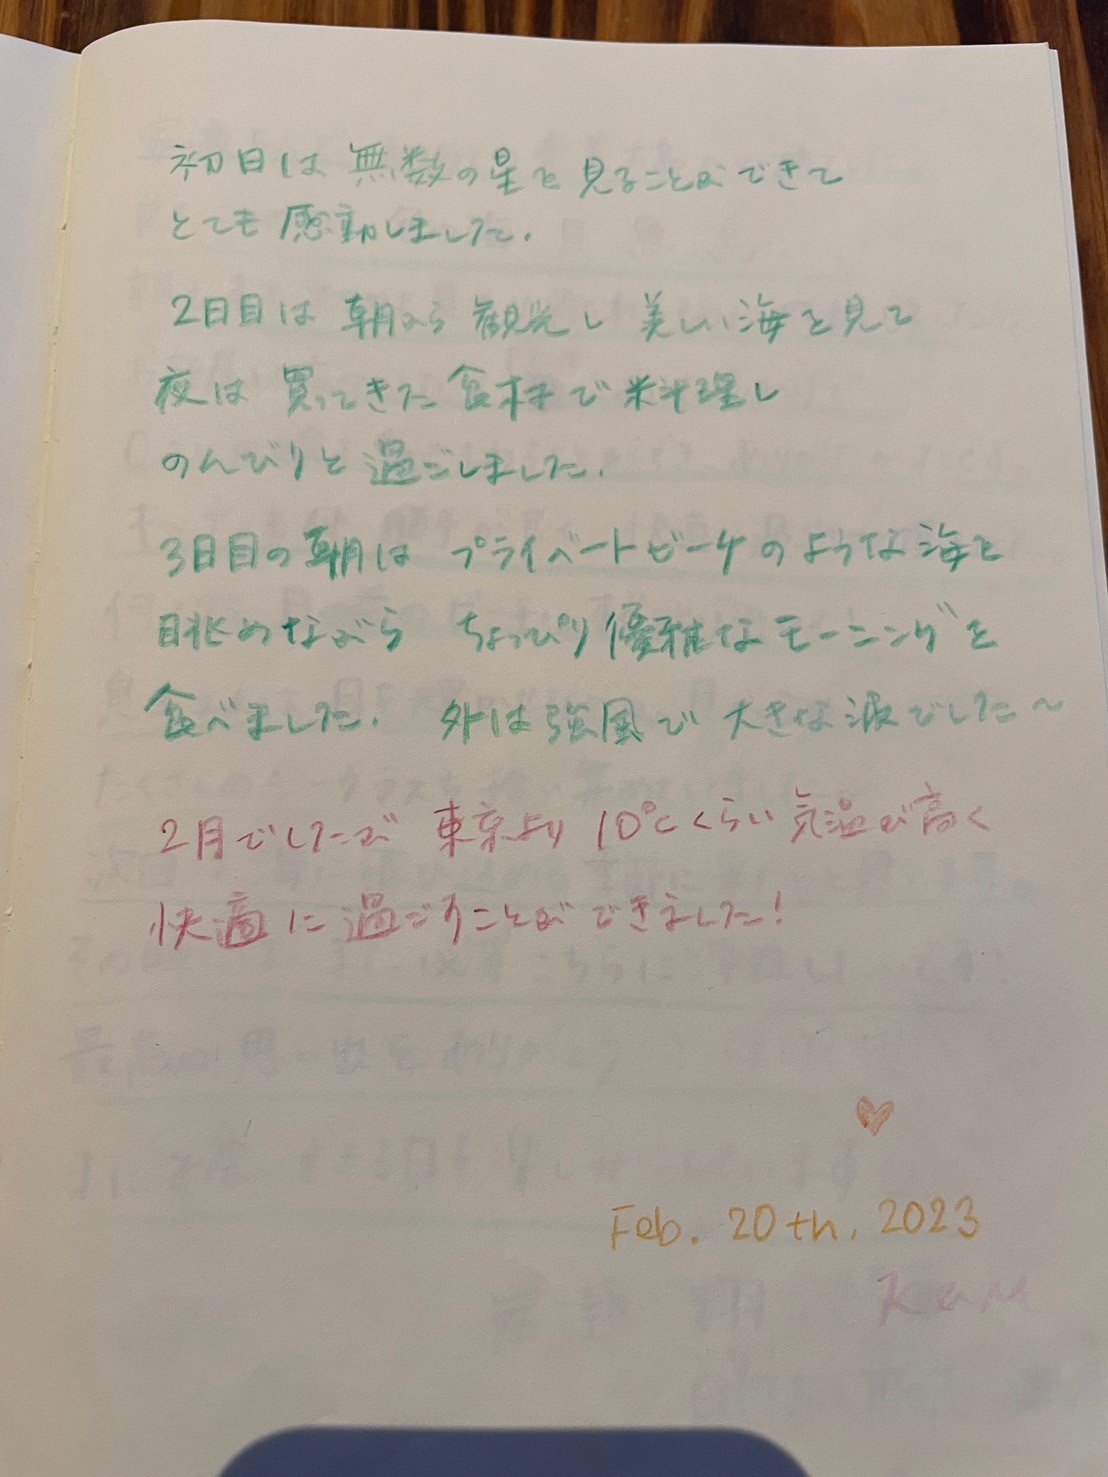 初日は 無数の星を 見ることができて
とても 感動しました.
2日目は 朝から 観光し 美しい海を見て
夜は 買ってきた 食材で 料理し
のんびりと 過ごしました.
3日目の朝は プライベートビーチのような海を
眺めながら ちょっぴり優雅なモーニングを
食べました. 外は強風で 大きな波でした〜
2月でしたが 東京より 10℃くらい気温が高く
快適に過ごすことができました!
Feb. 20th, 2023